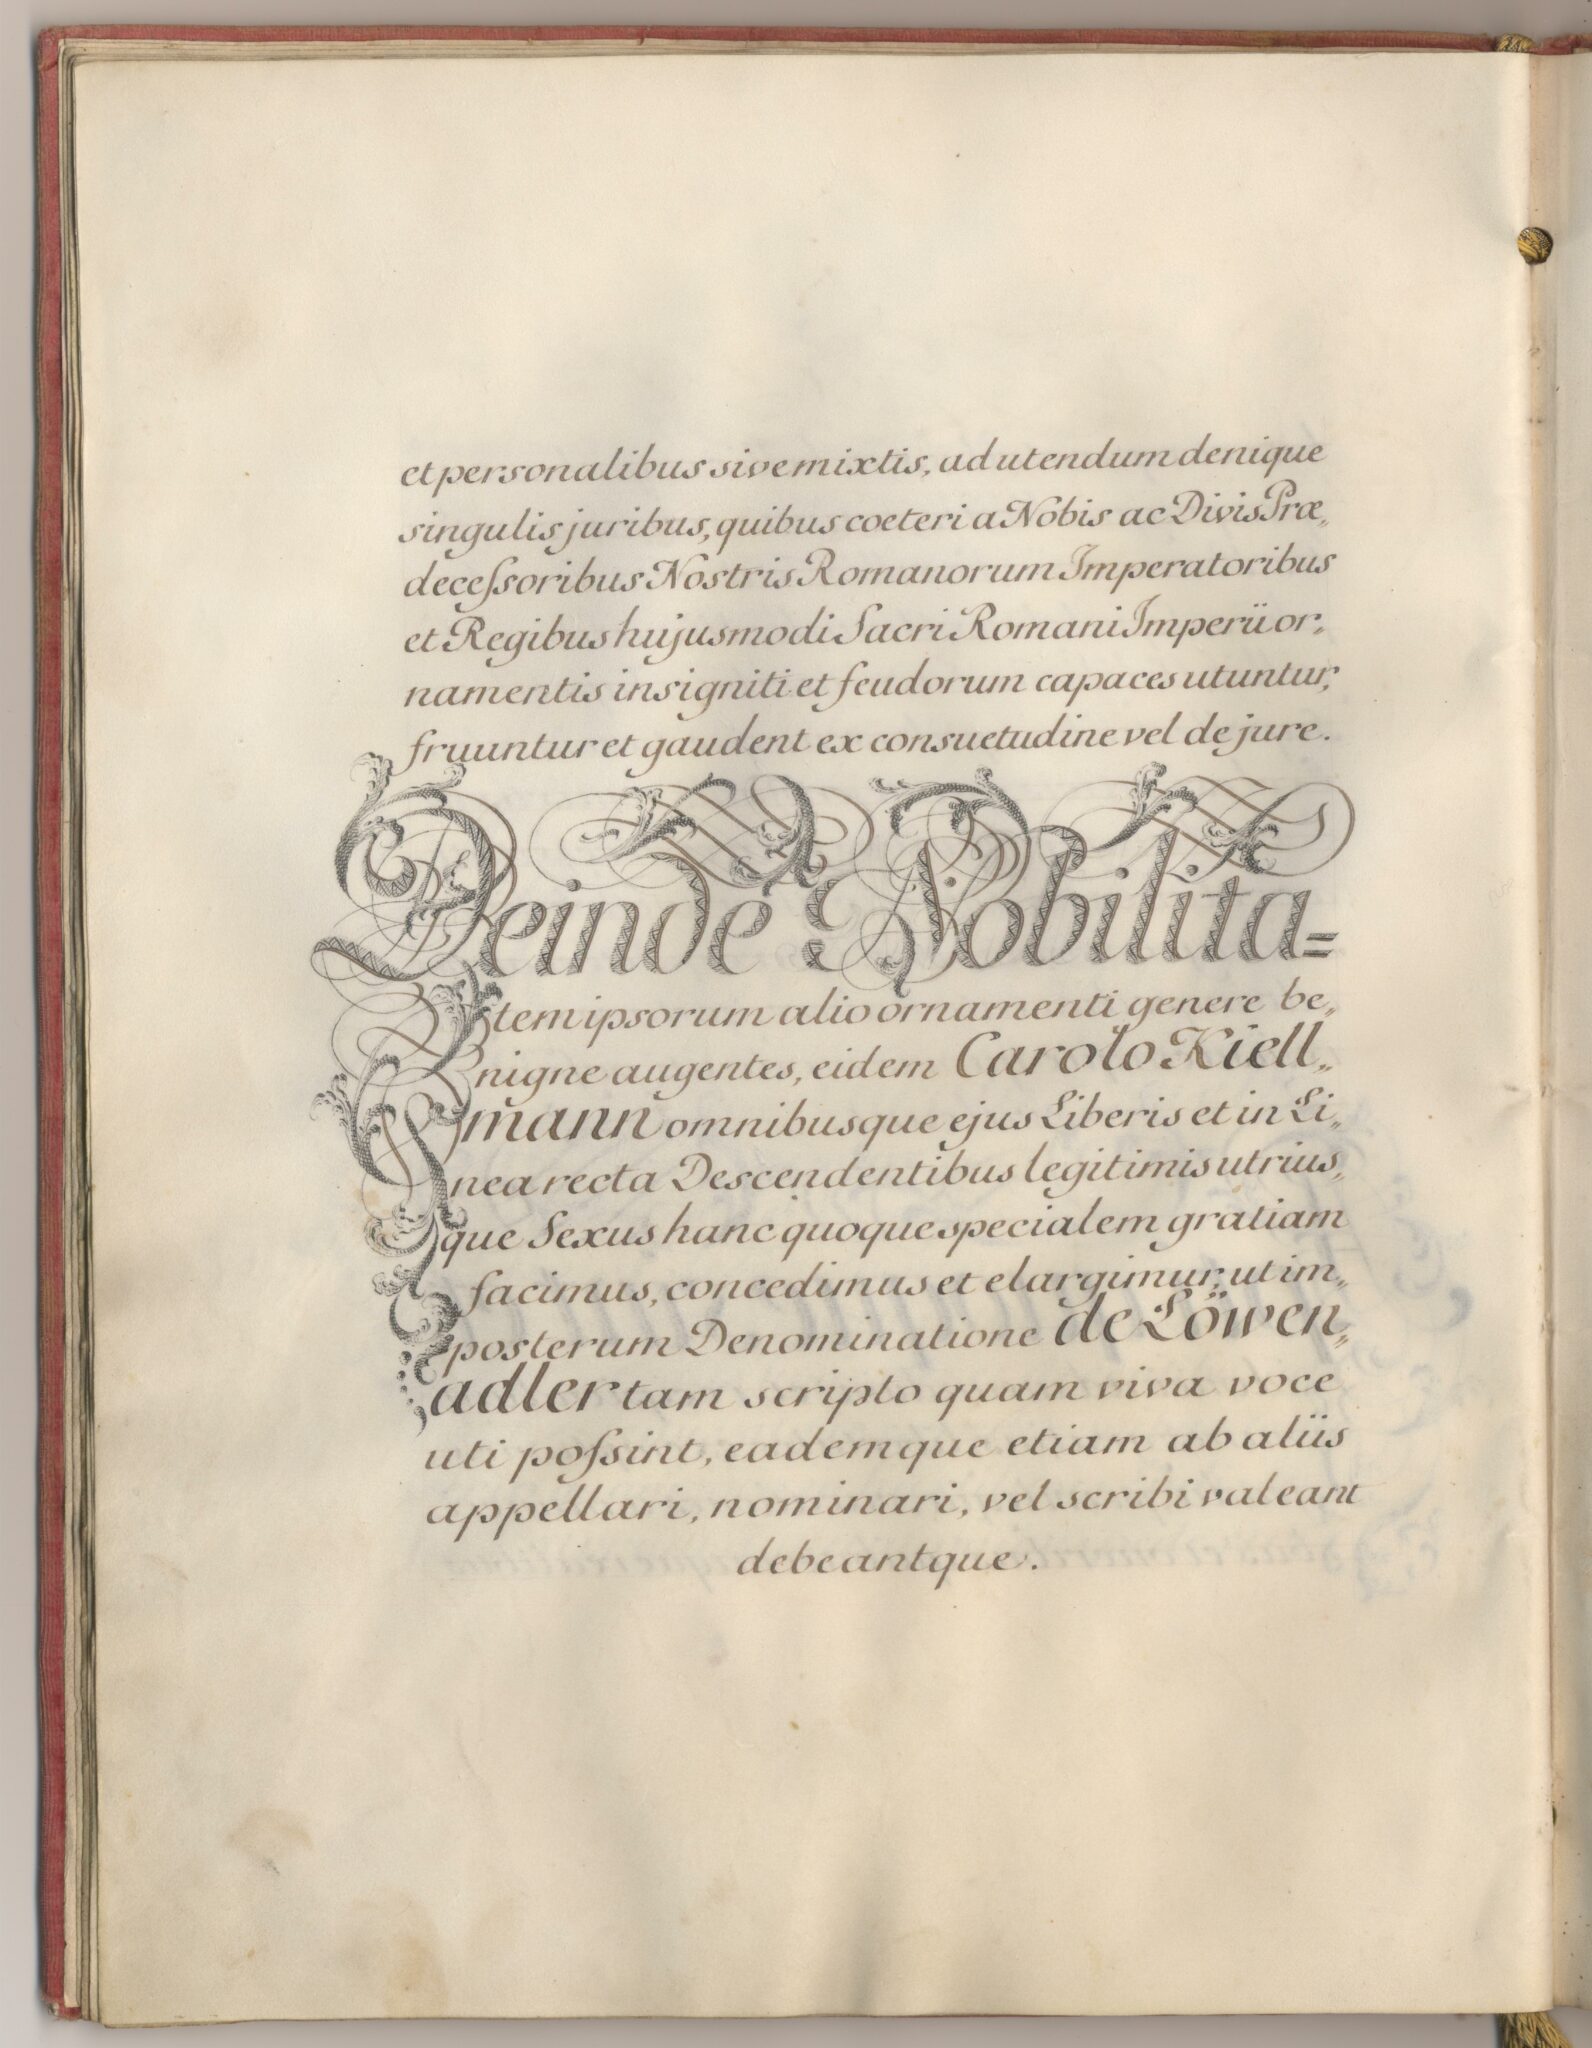 et personalibus sive mixtis, ad utendum denique
singulis juribus, quibus coeteri a Nobis ac Divis Præ„
deceſsoribus Nostris Romanorum Imperatoribus
et Regibus hujusmodi Sacri Romani Imperii or„
namentis insigniti et feudorum capaces utuntur,
fruuntur et gaudent ex consuetudine vel de jure.
Deinde Nobilita=
tem ipsorum alio ornamenti genere be„
nigne augentes, eidem Carolo Kiell„
mann omnibusque ejus Liberis et in Li„
nea recta Descendentibus legitimis utrius„
que Sexus hanc quoque specialem gratiam
facimus, concedimus et elargimur, ut im„
posterum Denominatione de Löwen„
adler tam scripto quam viva voce
uti poſsint, eademque etiam ab aliis
appellari, nominari, vel scribi valeant
debeantque.